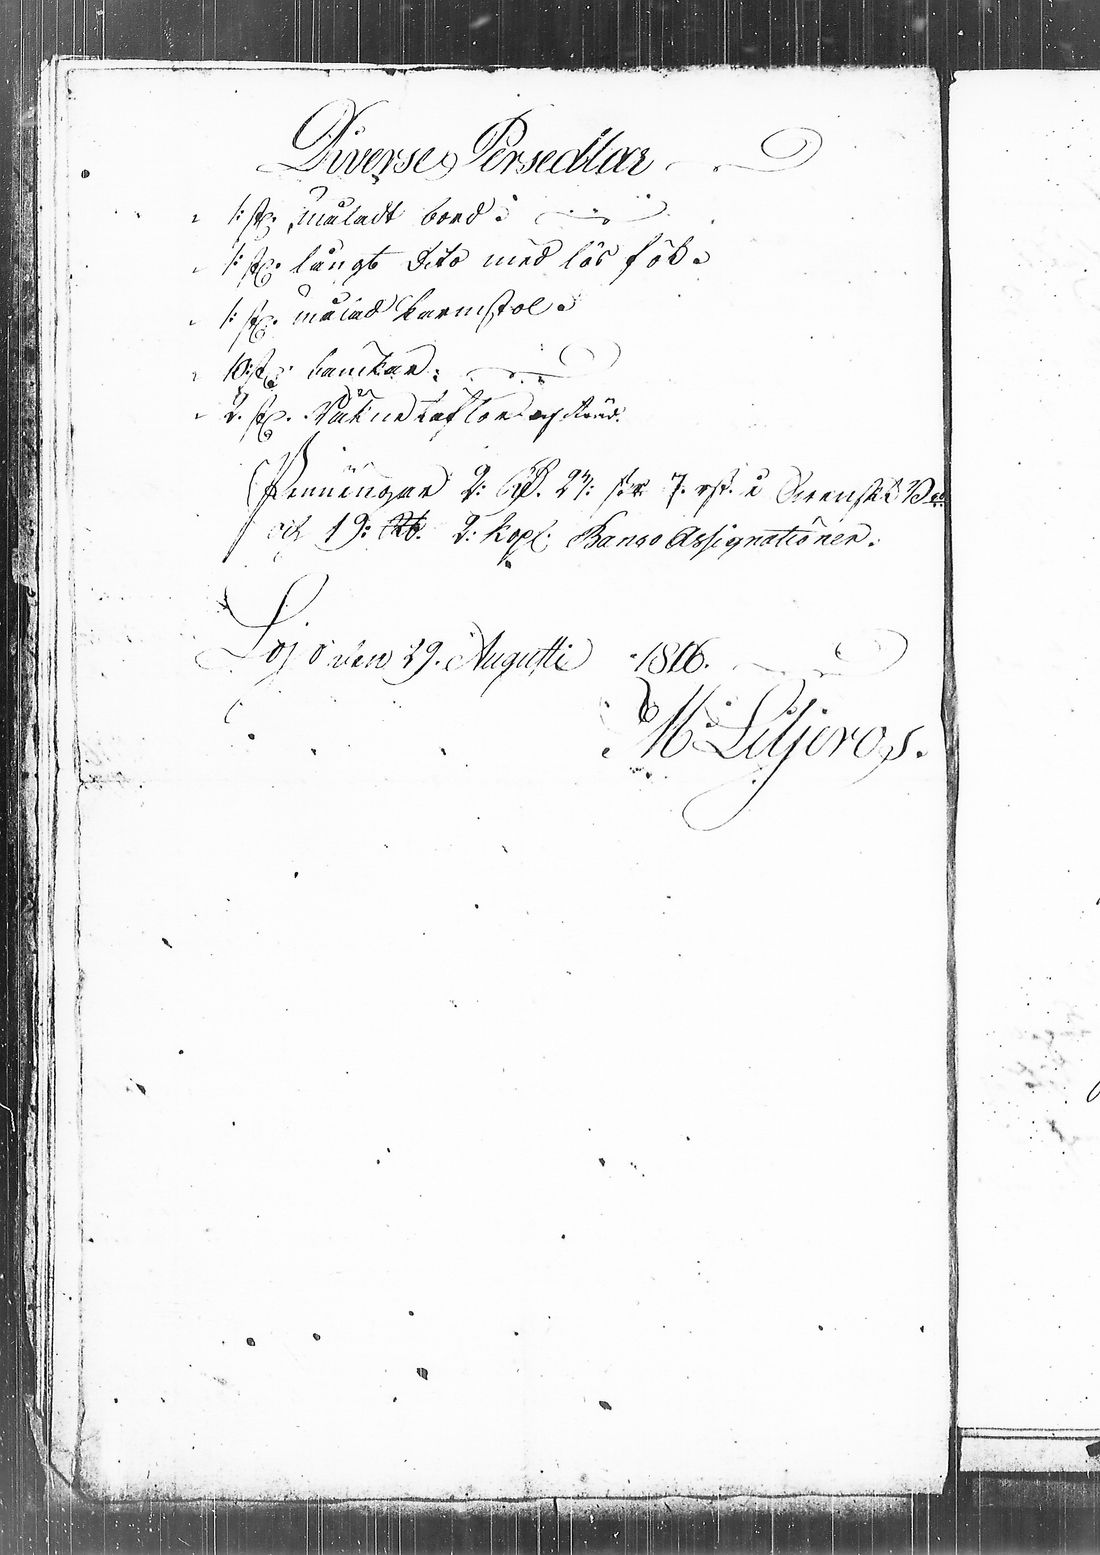 Diverse Persedlar
1: st. måladt bord:
1: st. långt Dito med lös fot.
1: st. målad karmstol.
10: st. bänckar:
2. st. Räknetaflor af träd.
Penningar 2: Rd. 24: sk: 7. rst. i Svenskt
och 19: Rb. 2: kop: Banco Assignationer.
Lojo den 29. Augusti 1816.
M Liljeros.